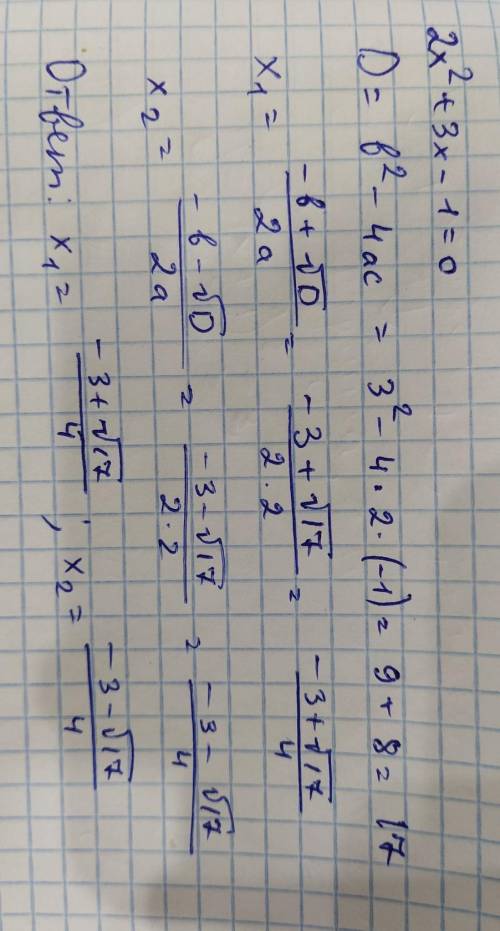 2x² + 3x - 1 = 0
D = b² - 4ac = 3² - 4·2·(-1) = 9 + 8 = 17
x₁ = (-b + √D)/(2a) = (-3 + √17)/(2·2) = (-3 + √17)/4
x₂ = (-b - √D)/(2a) = (-3 - √17)/(2·2) = (-3 - √17)/4
Ответ: x₁ = (-3 + √17)/4 ; x₂ = (-3 - √17)/4